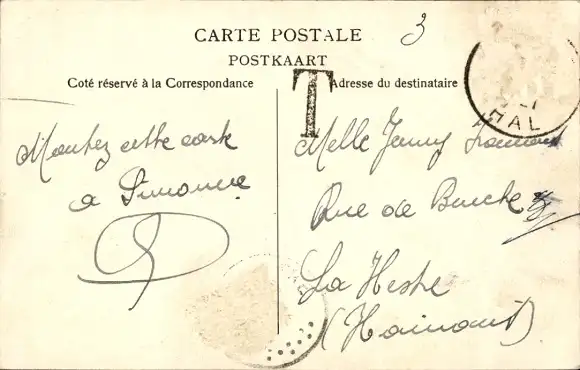 CARTE POSTALE
POSTKAART
Coté réservé à la Correspondance
Adresse du destinataire
3
T
HAL
Montez cette carte
a Simonne
Melle Jenny
Rue de Binche
La Hestre
(Hainaut)